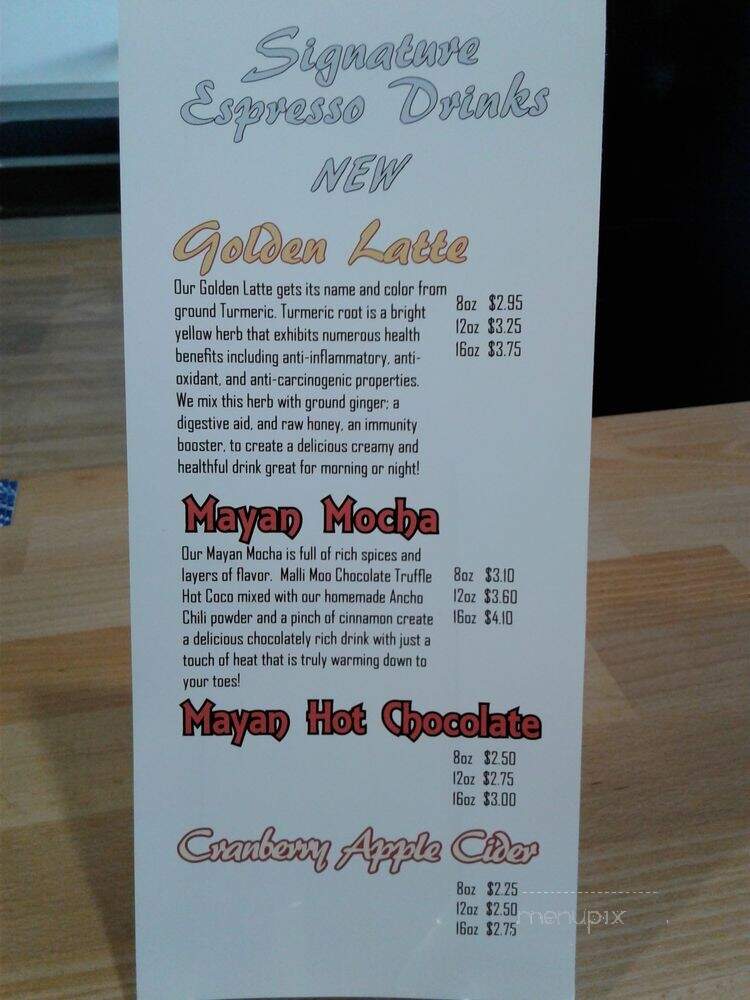 Signature
Espresso Drinks
NEW
Golden Latte
Our Golden Latte gets its name and color from
ground Turmeric. Turmeric root is a bright
yellow herb that exhibits numerous health
benefits including anti-inflammatory, anti-
oxidant, and anti-carcinogenic properties.
We mix this herb with ground ginger; a
digestive aid, and raw honey, an immunity
booster, to create a delicious creamy and
healthful drink great for morning or night!
8oz $2.95
12oz $3.25
16oz $3.75
Mayan Mocha
Our Mayan Mocha is full of rich spices and
layers of flavor. Malli Moo Chocolate Truffle
Hot Coco mixed with our homemade Ancho
Chili powder and a pinch of cinnamon create
a delicious chocolately rich drink with just a
touch of heat that is truly warming down to
your toes!
8oz $3.10
12oz $3.60
16oz $4.10
Mayan Hot Chocolate
8oz $2.50
12oz $2.75
16oz $3.00
Cranberry Apple Cider
8oz $2.25
12oz $2.50
16oz $2.75
menupix